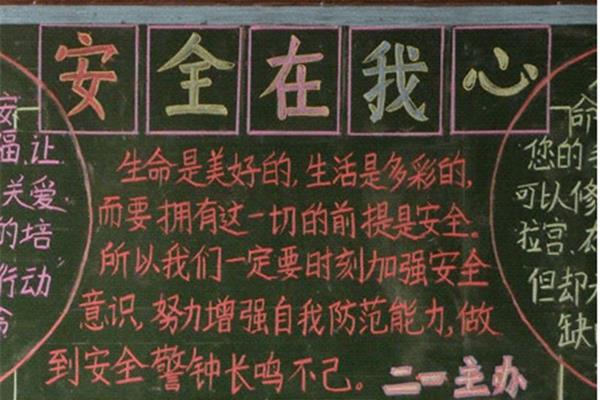 安全在我心
生命是美好的,生活是多彩的,
而要拥有这一切的前提是安全。
所以我们一定要时刻加强安全
意识,努力增强自我防范能力,做
到安全警钟长鸣不己。
二一主办
福,让
关爱
的培
行动
命
您的
可以修
拉宫,在
但却
缺